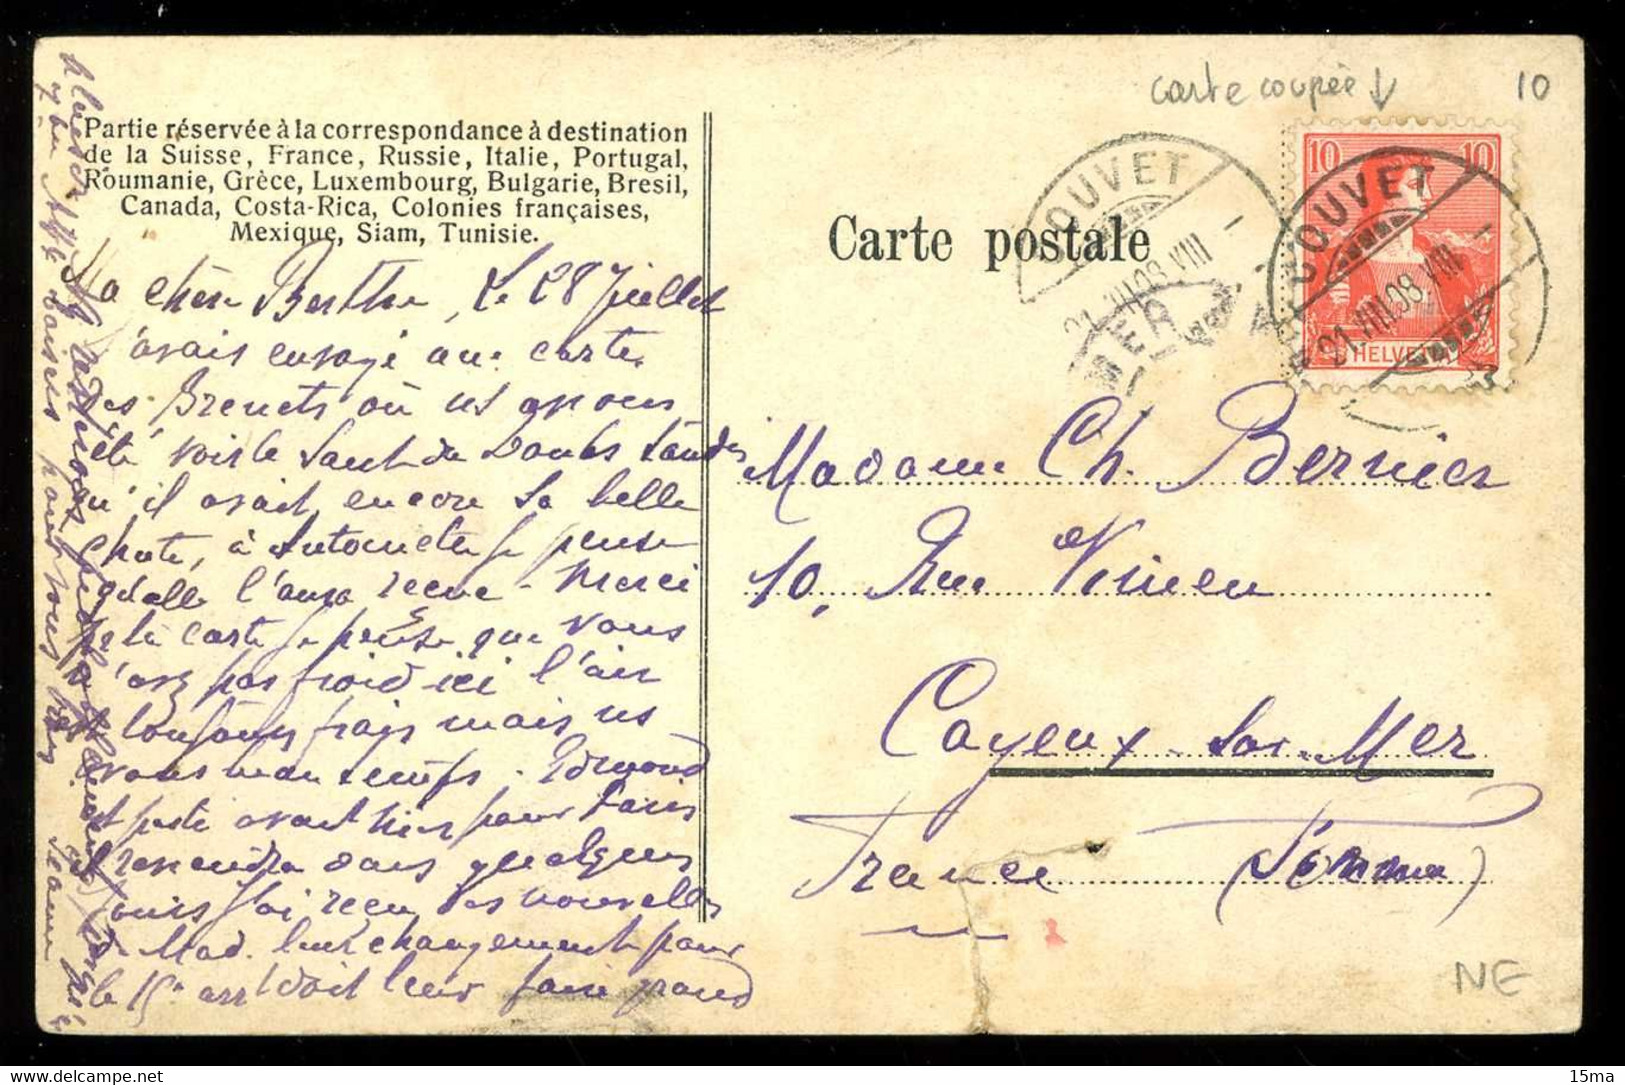 carte coupée ↓ 10
Partie réservée à la correspondance à destination
de la Suisse, France, Russie, Italie, Portugal,
Roumanie, Grèce, Luxembourg, Bulgarie, Bresil,
Canada, Costa-Rica, Colonies françaises,
Mexique, Siam, Tunisie.
Carte postale
COUVET
21.VIII.08.VIII
MER
10 10
HELVETIA
COUVET
21.VIII.08.VIII
Ma chère Berthe, Le 28 Juillet
j'avais envoyé une carte
des Brenets où ns avons
été voir le Saut du Doubs tandis
qu'il avait encore sa belle
chute, à Antoinette je pense
qu'elle l'aura reçue - Merci
de la carte je pense que vous
n'avez pas froid ici l'air
toujours frais mais ns
avons beau temps. Edmond
est parti avant hier pour Paris
reviendra dans quelques
jours j'ai reçu des nouvelles
de Mad. leur changement pour
le 15e arr doit leur faire grand
plaisir
baisers pour vous
Jeanne
Madame Ch. Bernier
10, Rue
Cayeux-sur-Mer
France (Somme)
NE
15ma